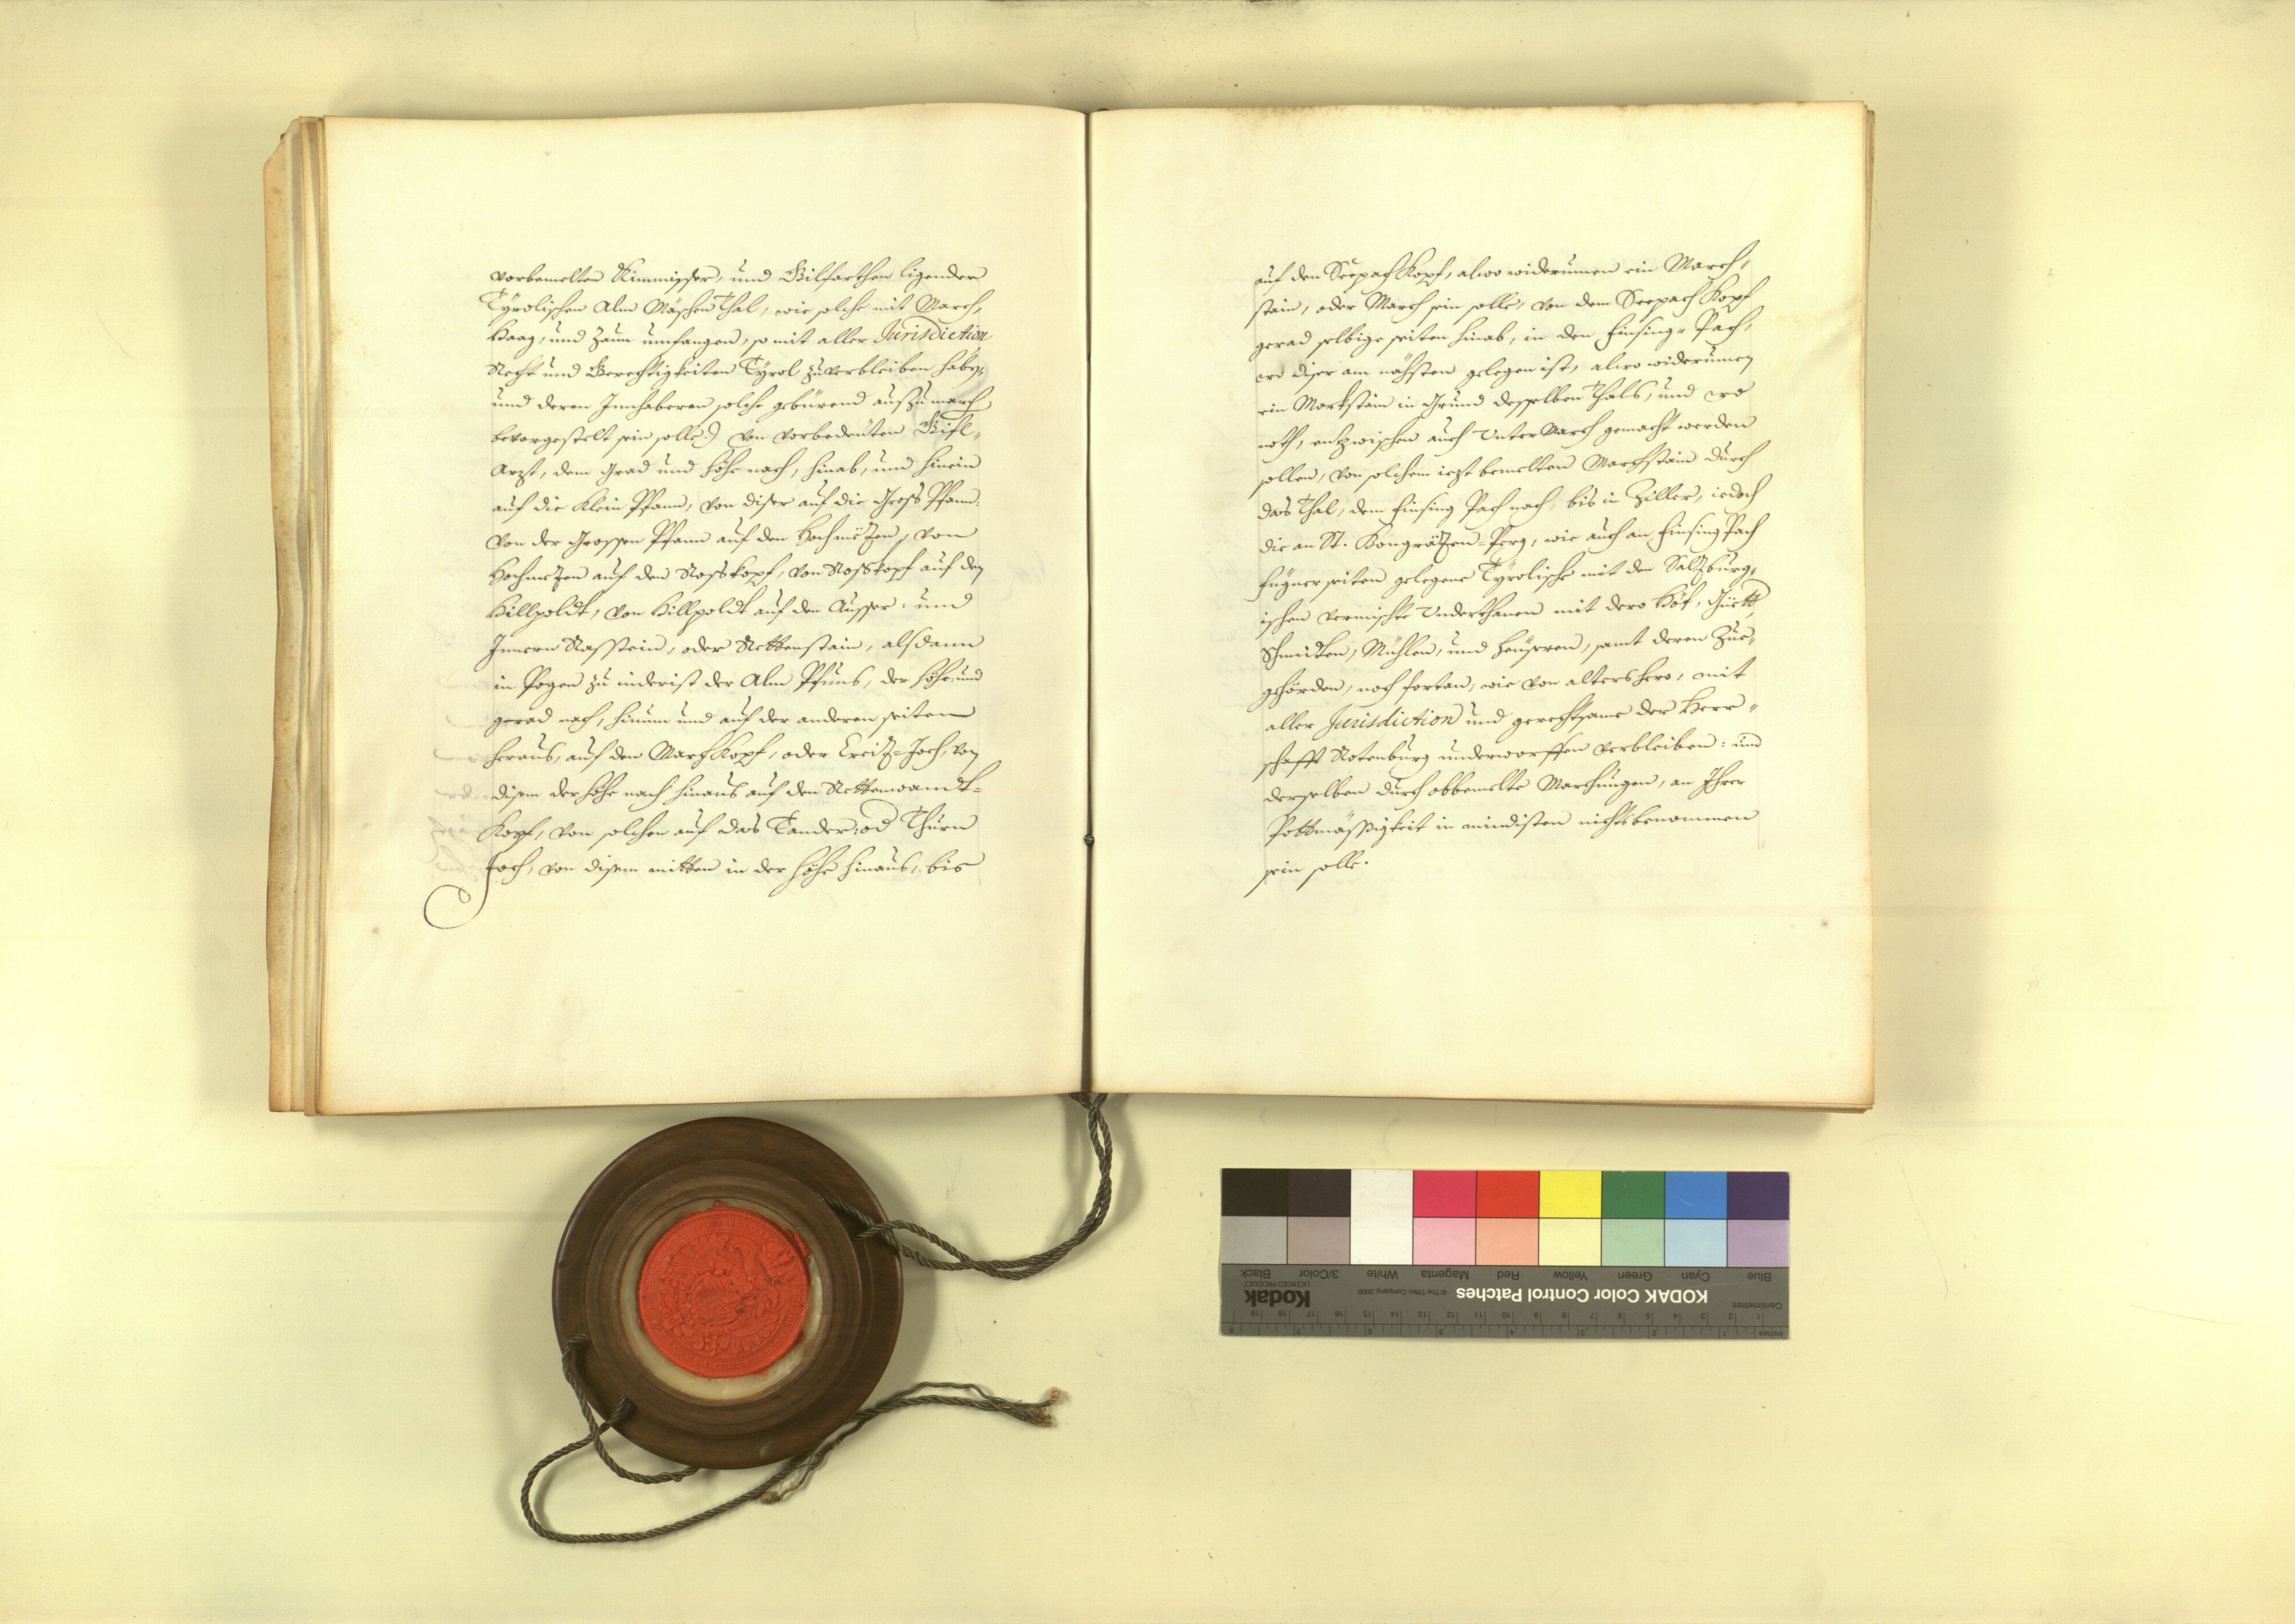 vorbemelten Rimmisser, und Gilfarthen ligenden
Tyrolischen Alm Mäschen Thal, wie solche mit March,
Haag, und Zaun umfangen, so mit aller Jurisdiction
Recht und Gerechtigkeiten Tyrol zuverbleiben haben,
und deren Innhaberen solche gebürend auszumarch
bevorgestelt sein solle) von vorbedeuten Gifl-
Arzt, dem Grad und Höhe nach, hinab, und hinein
auf die Klein Pfann, von diser auf die Gross Pfann,
von der Grossen Pfann auf den Hochmetzen, vom
Hochmetzen auf den Rosskopf, von Rosskopf auf den
Hillpoldt, von Hillpoldt auf den Ausser- und
Innern Rasstein, oder Rettenstain, alsdann
in Pogen zu inderist der Alm Pfuns, der Höhe und
gerad nach, hinum und auf der anderen seiten
heraus, auf den March Kopf, oder Creitz-Joch, von
disem der Höhe nach hinaus auf den Rettenwandt-
Kopf, von solchen auf das Tander: od Thurn
Joch, von disem mitten in der Höhe hinaus, bis
auf den Seepach Kopf, alwo widerumen ein March-
stain, oder March sein solle, von dem Seepach Kopf
gerad selbige seiten hinab, in den Finsing-Pach,
wo diser am nähsten gelegen ist, alwo widerumen
ein Markstain in Grund desselben Thals, und wo
noth, entzwischen auch Unter March gemacht werden
sollen, von solchem iezt bemelten Marchstain durch
das Thal, dem Finsing Pach nach bis in Ziller, iedoch
die an St. Pongrätzen-Perg, wie auch an Finsing Pach
Fügner seiten gelegene Tyrolische mit den Saltzburg-
ischen vermischte Underthanen mit dero Höf, Güett,
Schmitten, Mühlen, und Heüseren, samt deren Zue-
gehörden, noch fortan, wie von altershero, mit
aller Jurisdiction und gerechtsame der Herr-
schafft Rotenburg underworffen verbleiben: und
derselben durch obbemelte Marchungen, an Ihrer
Pottmässigkeit in mindisten nichts benommen
sein solle.
KODAK Color Control Patches
© The Tiffen Company, 2000
Kodak
LICENSED PRODUCT
Blue Cyan Green Yellow Red Magenta White 3/Color Black
Centimetres
1 2 3 4 5 6 7 8 9 10 11 12 13 14 15 16 17 18 19
Inches
1 2 3 4 5 6 7 8